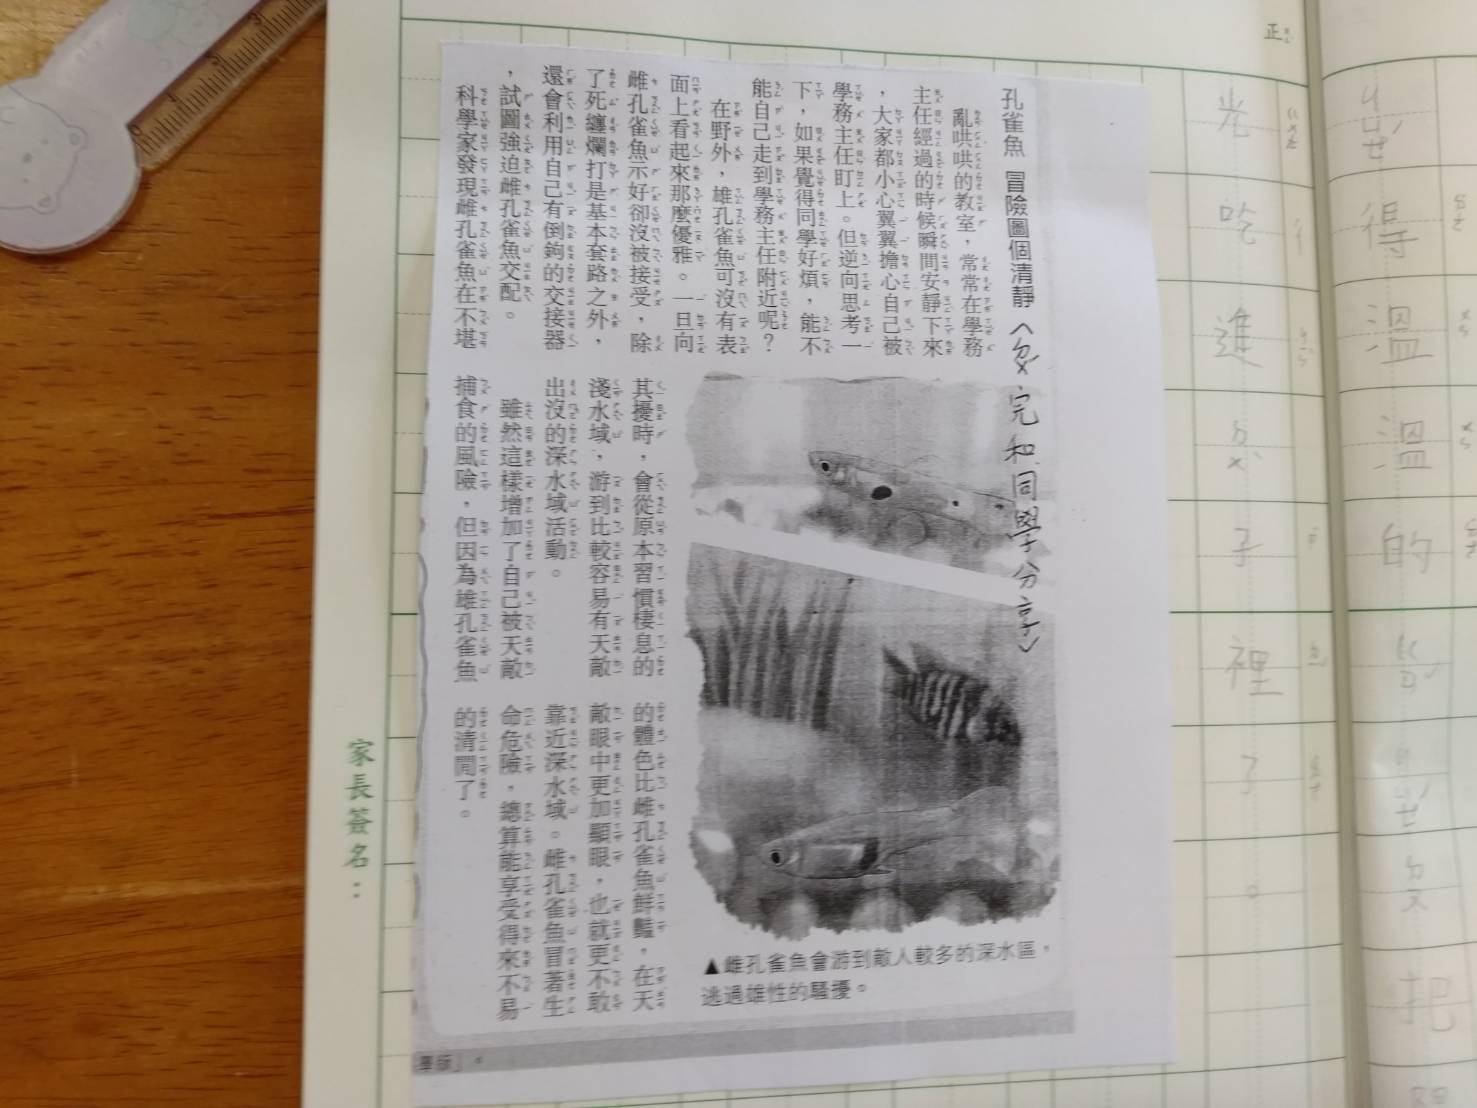 孔雀魚 冒險圖個清靜
完和同學分享
亂哄哄的教室，常常在學務
主任經過的時候瞬間安靜下來
，大家都小心翼翼擔心自己被
學務主任盯上。但逆向思考一
下，如果覺得同學好煩，能不
能自己走到學務主任附近呢？
在野外，雄孔雀魚可沒有表
面上看起來那麼優雅。一旦向
雌孔雀魚示好卻沒被接受，除
了死纏爛打是基本套路之外，
還會利用自己有倒鉤的交接器
，試圖強迫雌孔雀魚交配。
科學家發現雌孔雀魚在不堪
其擾時，會從原本習慣棲息的
淺水域，游到比較容易有天敵
出沒的深水域活動。
雖然這樣增加了自己被天敵
捕食的風險，但因為雄孔雀魚
的體色比雌孔雀魚鮮豔，在天
敵眼中更加顯眼，也就更不敢
靠近深水域。雌孔雀魚冒著生
命危險，總算能享受得來不易
的清閒了。
▲雌孔雀魚會游到敵人較多的深水區，
逃過雄性的騷擾。
家長簽名：
正
得
溫
溫
的
把
光
吃
進
子
裡
了
。